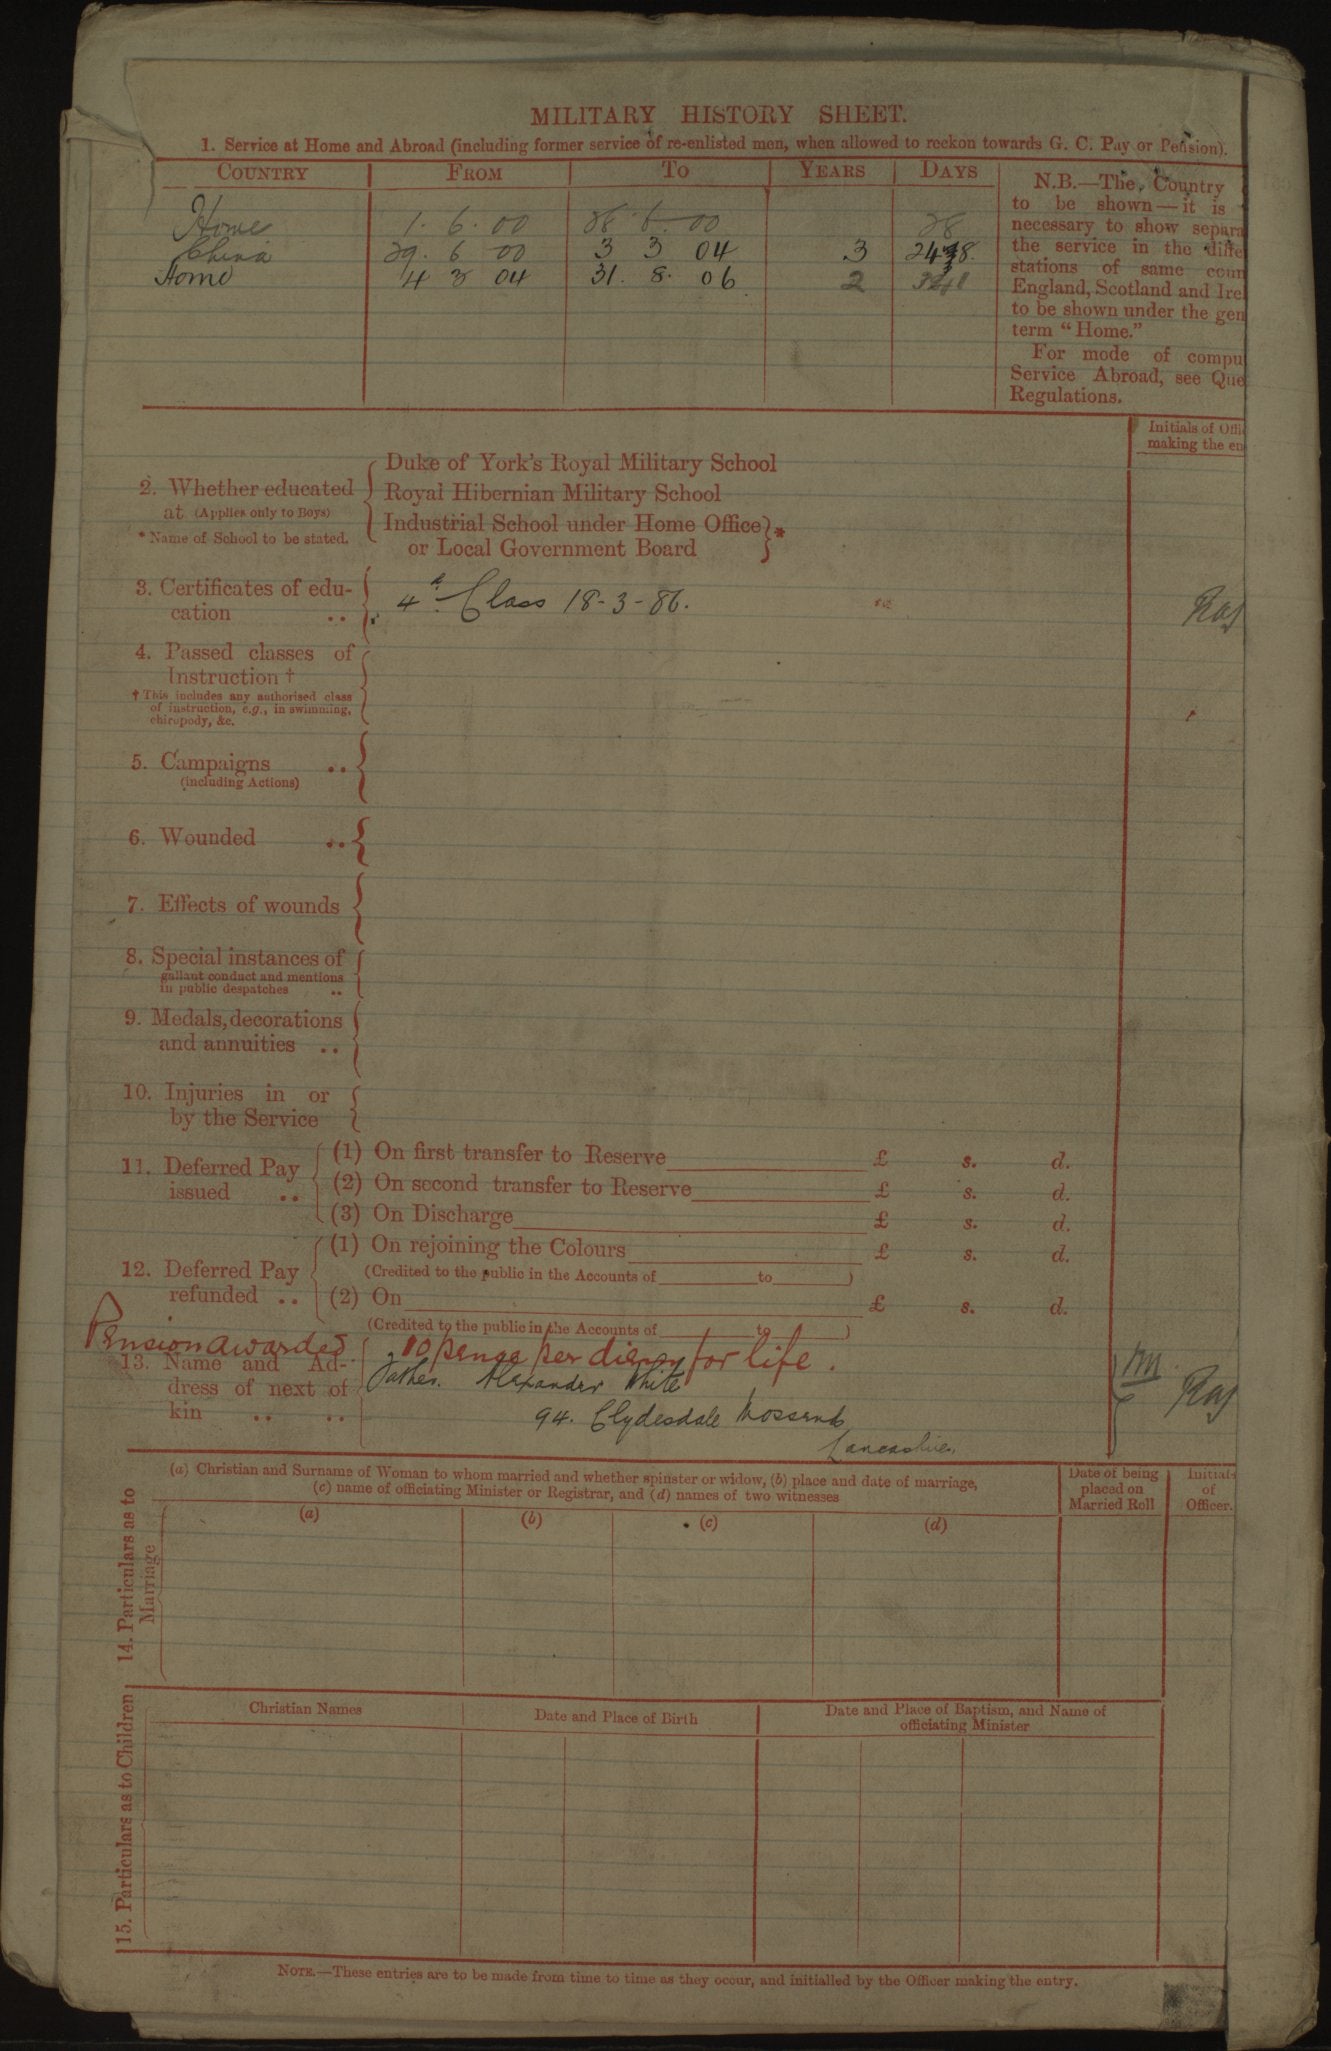 MILITARY HISTORY SHEET.
1. Service at Home and Abroad (including former service of re-enlisted men, when allowed to reckon towards G. C. Pay or Pension).
COUNTRY FROM TO YEARS DAYS
Home 1. 6. 00 28. 6. 00 28
China 29. 6 00 3 3 04 3
Home 4 3 04 31. 8. 06 2
N.B.—The Country
to be shown—it is
necessary to show separa
the service in the diffe
stations of same coun
England, Scotland and Irel
to be shown under the gen
term "Home."
For mode of compu
Service Abroad, see Que
Regulations.
Initials of Offi
making the en
2. Whether educated
at (Applies only to Boys)
* Name of School to be stated.
Duke of York's Royal Military School
Royal Hibernian Military School
Industrial School under Home Office
or Local Government Board } *
3. Certificates of edu-
cation ..
4th Class 18-3-86.
4. Passed classes of
Instruction †
† This includes any authorised class
of instruction, e.g., in swimming,
chiropody, &c.
5. Campaigns ..
(including Actions)
6. Wounded ..
7. Effects of wounds
8. Special instances of
gallant conduct and mentions
in public despatches ..
9. Medals, decorations
and annuities ..
10. Injuries in or
by the Service
11. Deferred Pay
issued ..
(1) On first transfer to Reserve £ s. d.
(2) On second transfer to Reserve £ s. d.
(3) On Discharge £ s. d.
12. Deferred Pay
refunded ..
(1) On rejoining the Colours £ s. d.
(Credited to the public in the Accounts of to )
(2) On £ s. d.
(Credited to the public in the Accounts of to )
Pension awarded 10 pence per diem for life.
13. Name and Ad-
dress of next of
kin .. ..
Father. Alexander White
94. Clydesdale Mossend
Lancashire
14. Particulars as to
Marriage
(a) Christian and Surname of Woman to whom married and whether spinster or widow, (b) place and date of marriage,
(c) name of officiating Minister or Registrar, and (d) names of two witnesses
Date of being
placed on
Married Roll
Initials
of
Officer.
(a) (b) (c) (d)
15. Particulars as to Children
Christian Names
Date and Place of Birth
Date and Place of Baptism, and Name of
officiating Minister
NOTE.—These entries are to be made from time to time as they occur, and initialled by the Officer making the entry.